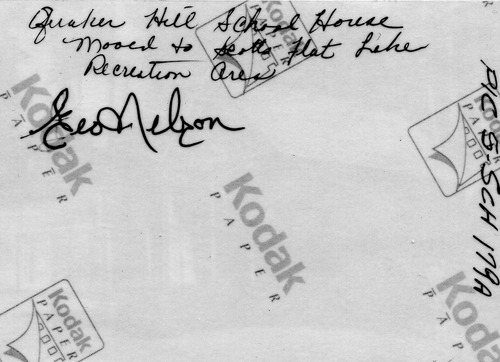 Quaker Hill School House
Moved to Scotts Flat Lake
Recreation Area
Geo Nelson
PIC 5-SCH 179A
Kodak
PAPER
Kodak
PAPER
Kodak
PAPER
Kodak
PAPER
Kodak
PAPER